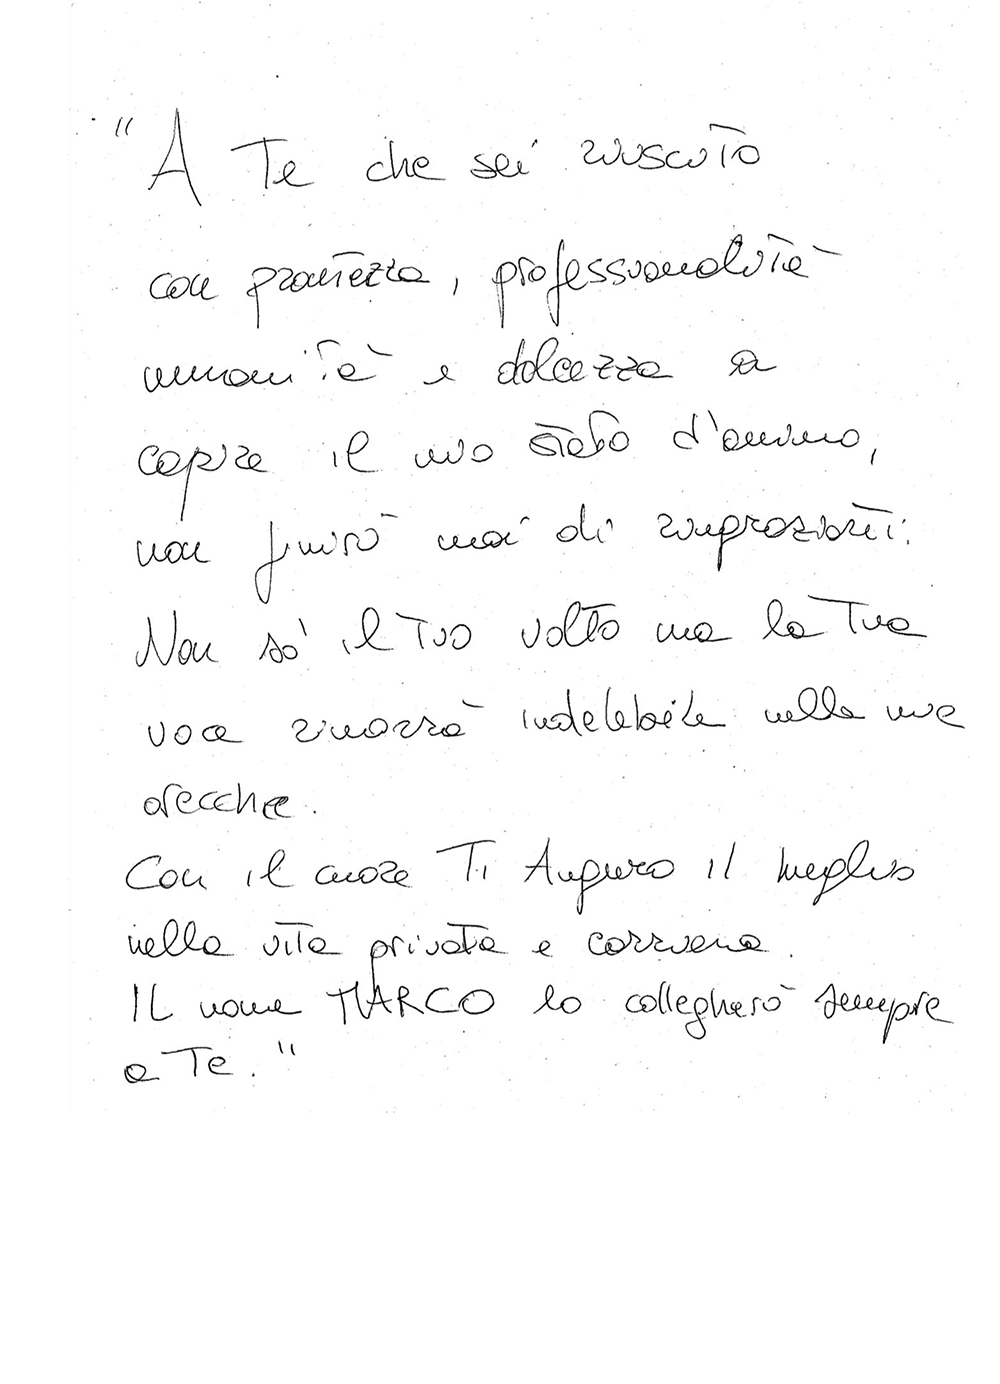 "A Te che sei riuscito
con prontezza, professionalità
umanità e dolcezza a
capire il mio stato d'animo,
non finirò mai di ringraziarti.
Non sò il Tuo volto ma la Tua
voce rimarrà indelebile nelle mie
orecchie.
Con il cuore Ti Auguro il meglio
nella vita privata e carriera.
IL nome MARCO lo collegherò sempre
a Te."